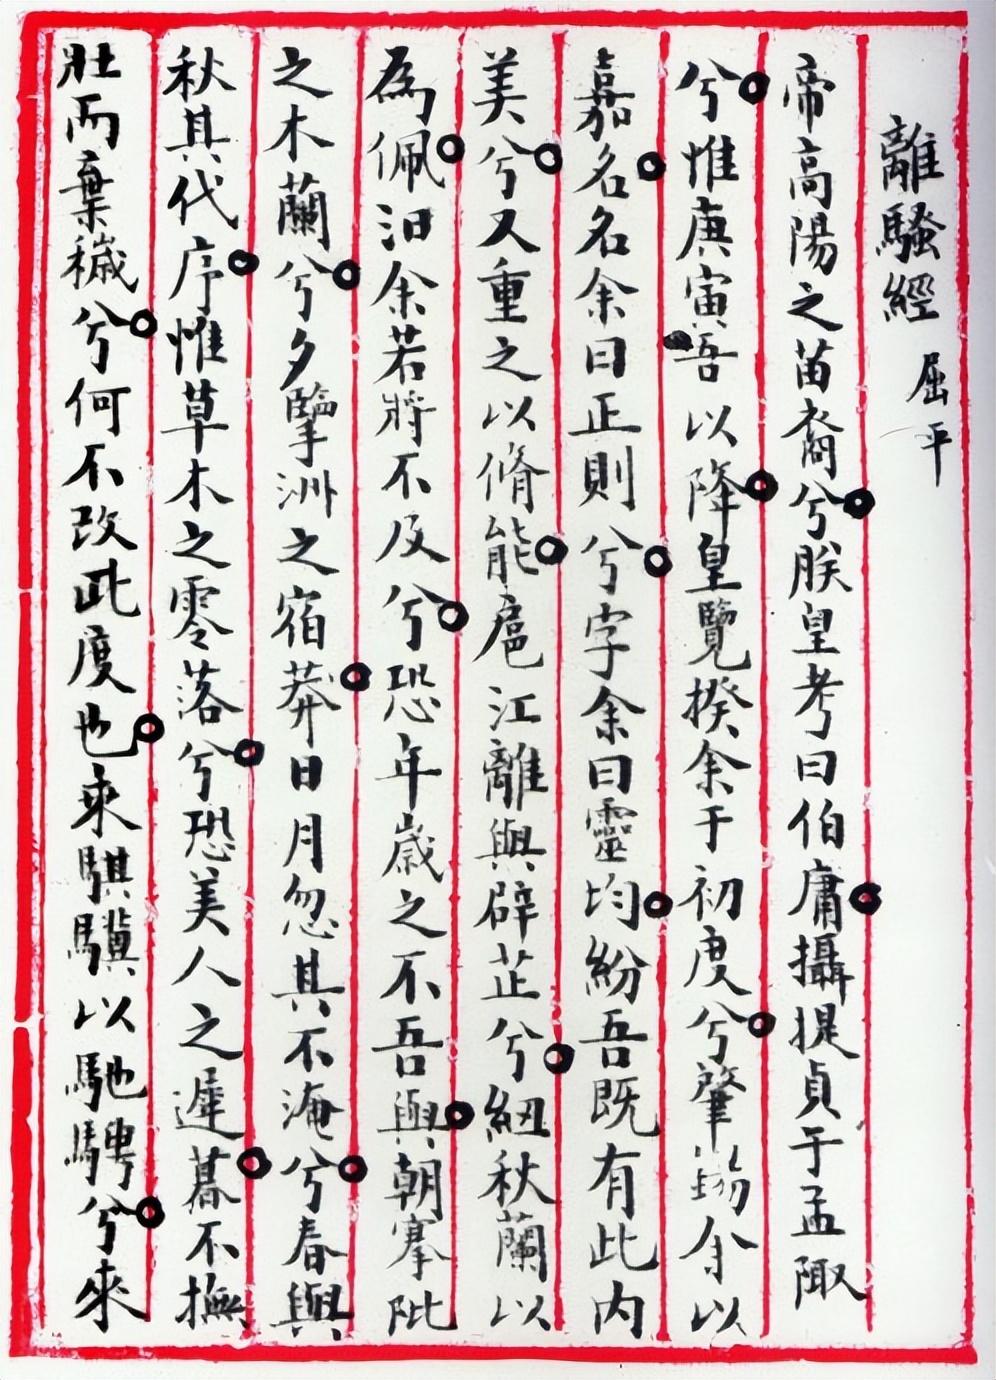 離騷經
屈平
帝高陽之苗裔兮朕皇考曰伯庸攝提貞于孟陬
兮惟庚寅吾以降皇覽揆余于初度兮肇錫余以
嘉名名余曰正則兮字余曰靈均紛吾既有此内
美兮又重之以脩能扈江離與辟芷兮紐秋蘭以
為佩汩余若將不及兮恐年歲之不吾與朝搴阰
之木蘭兮夕擥洲之宿莽日月忽其不淹兮春與
秋其代序惟草木之零落兮恐美人之遲暮不撫
壯而棄穢兮何不改此度也乘騏驥以馳騁兮來